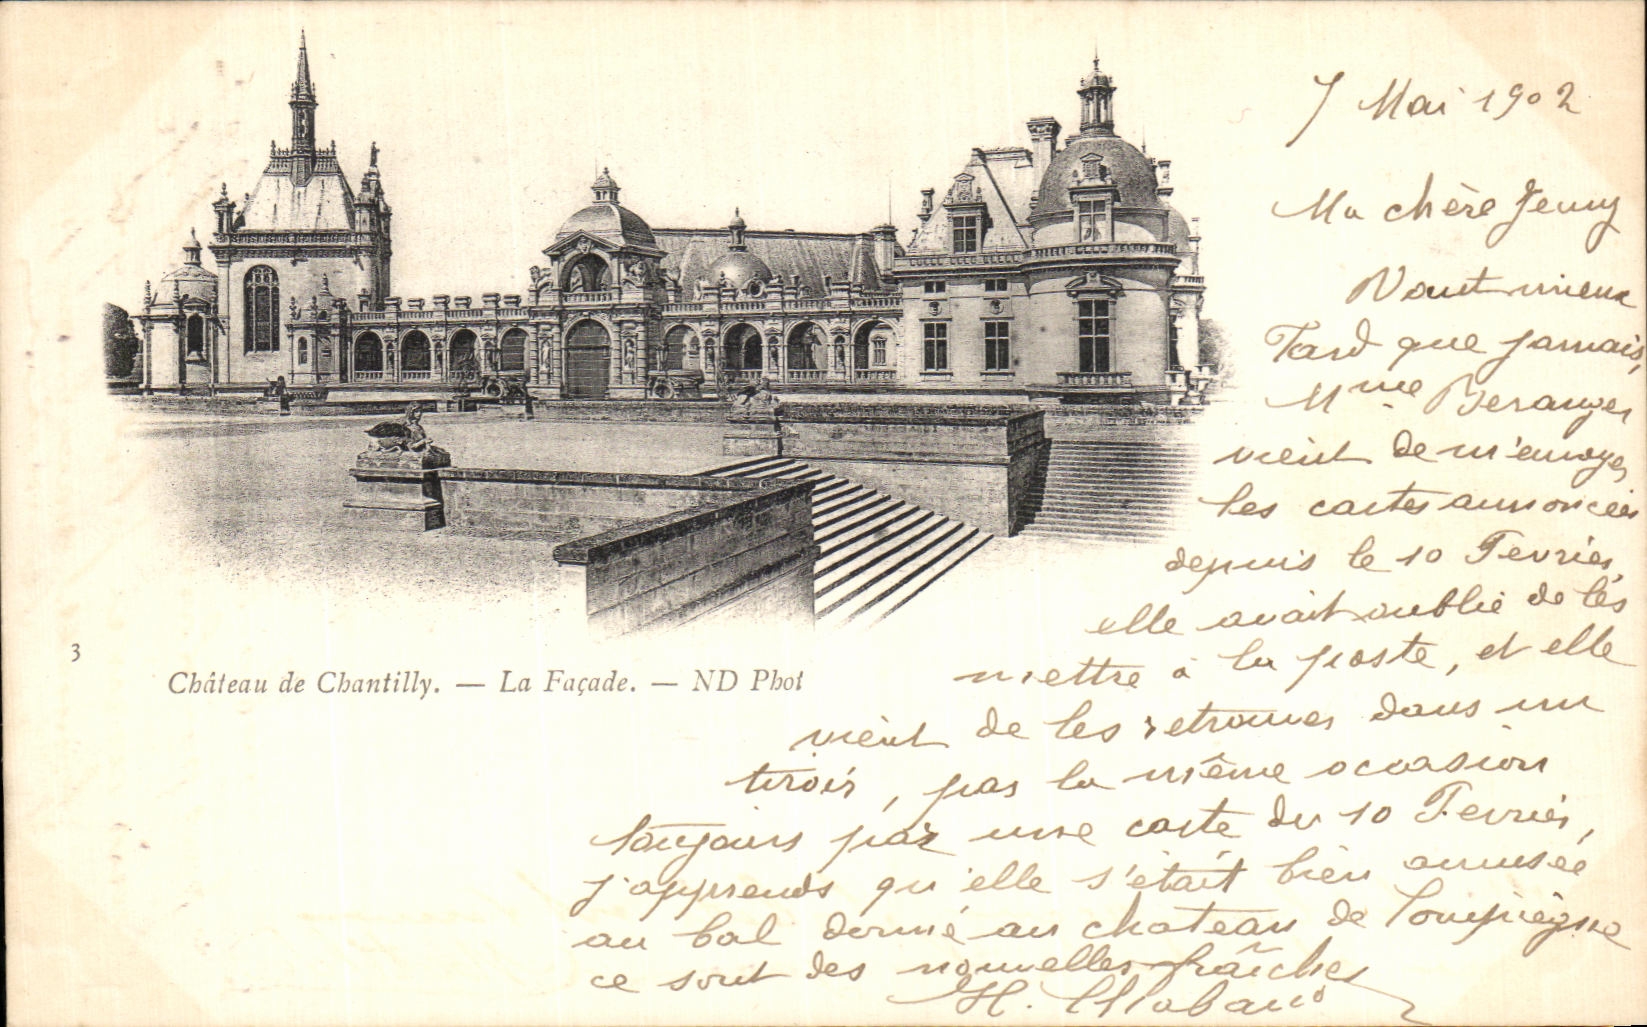 7 Mai 1902
Ma chère Jenny
Vaut mieux
Tard que jamais,
Mme Beranger
vient de m'envoyer
les cartes annoncées
depuis le 10 Fevrier,
elle avait oublié de les
mettre à la poste, et elle
vient de les retrouver dans un
tiroir, par la même occasion
toujours par une carte du 10 Fevrier,
j'apprends qu'elle s'était bien amusée
au bal donné au chateau de Compiègne
ce sont des nouvelles fraîches
H.
3
Château de Chantilly. — La Façade. — ND Phot